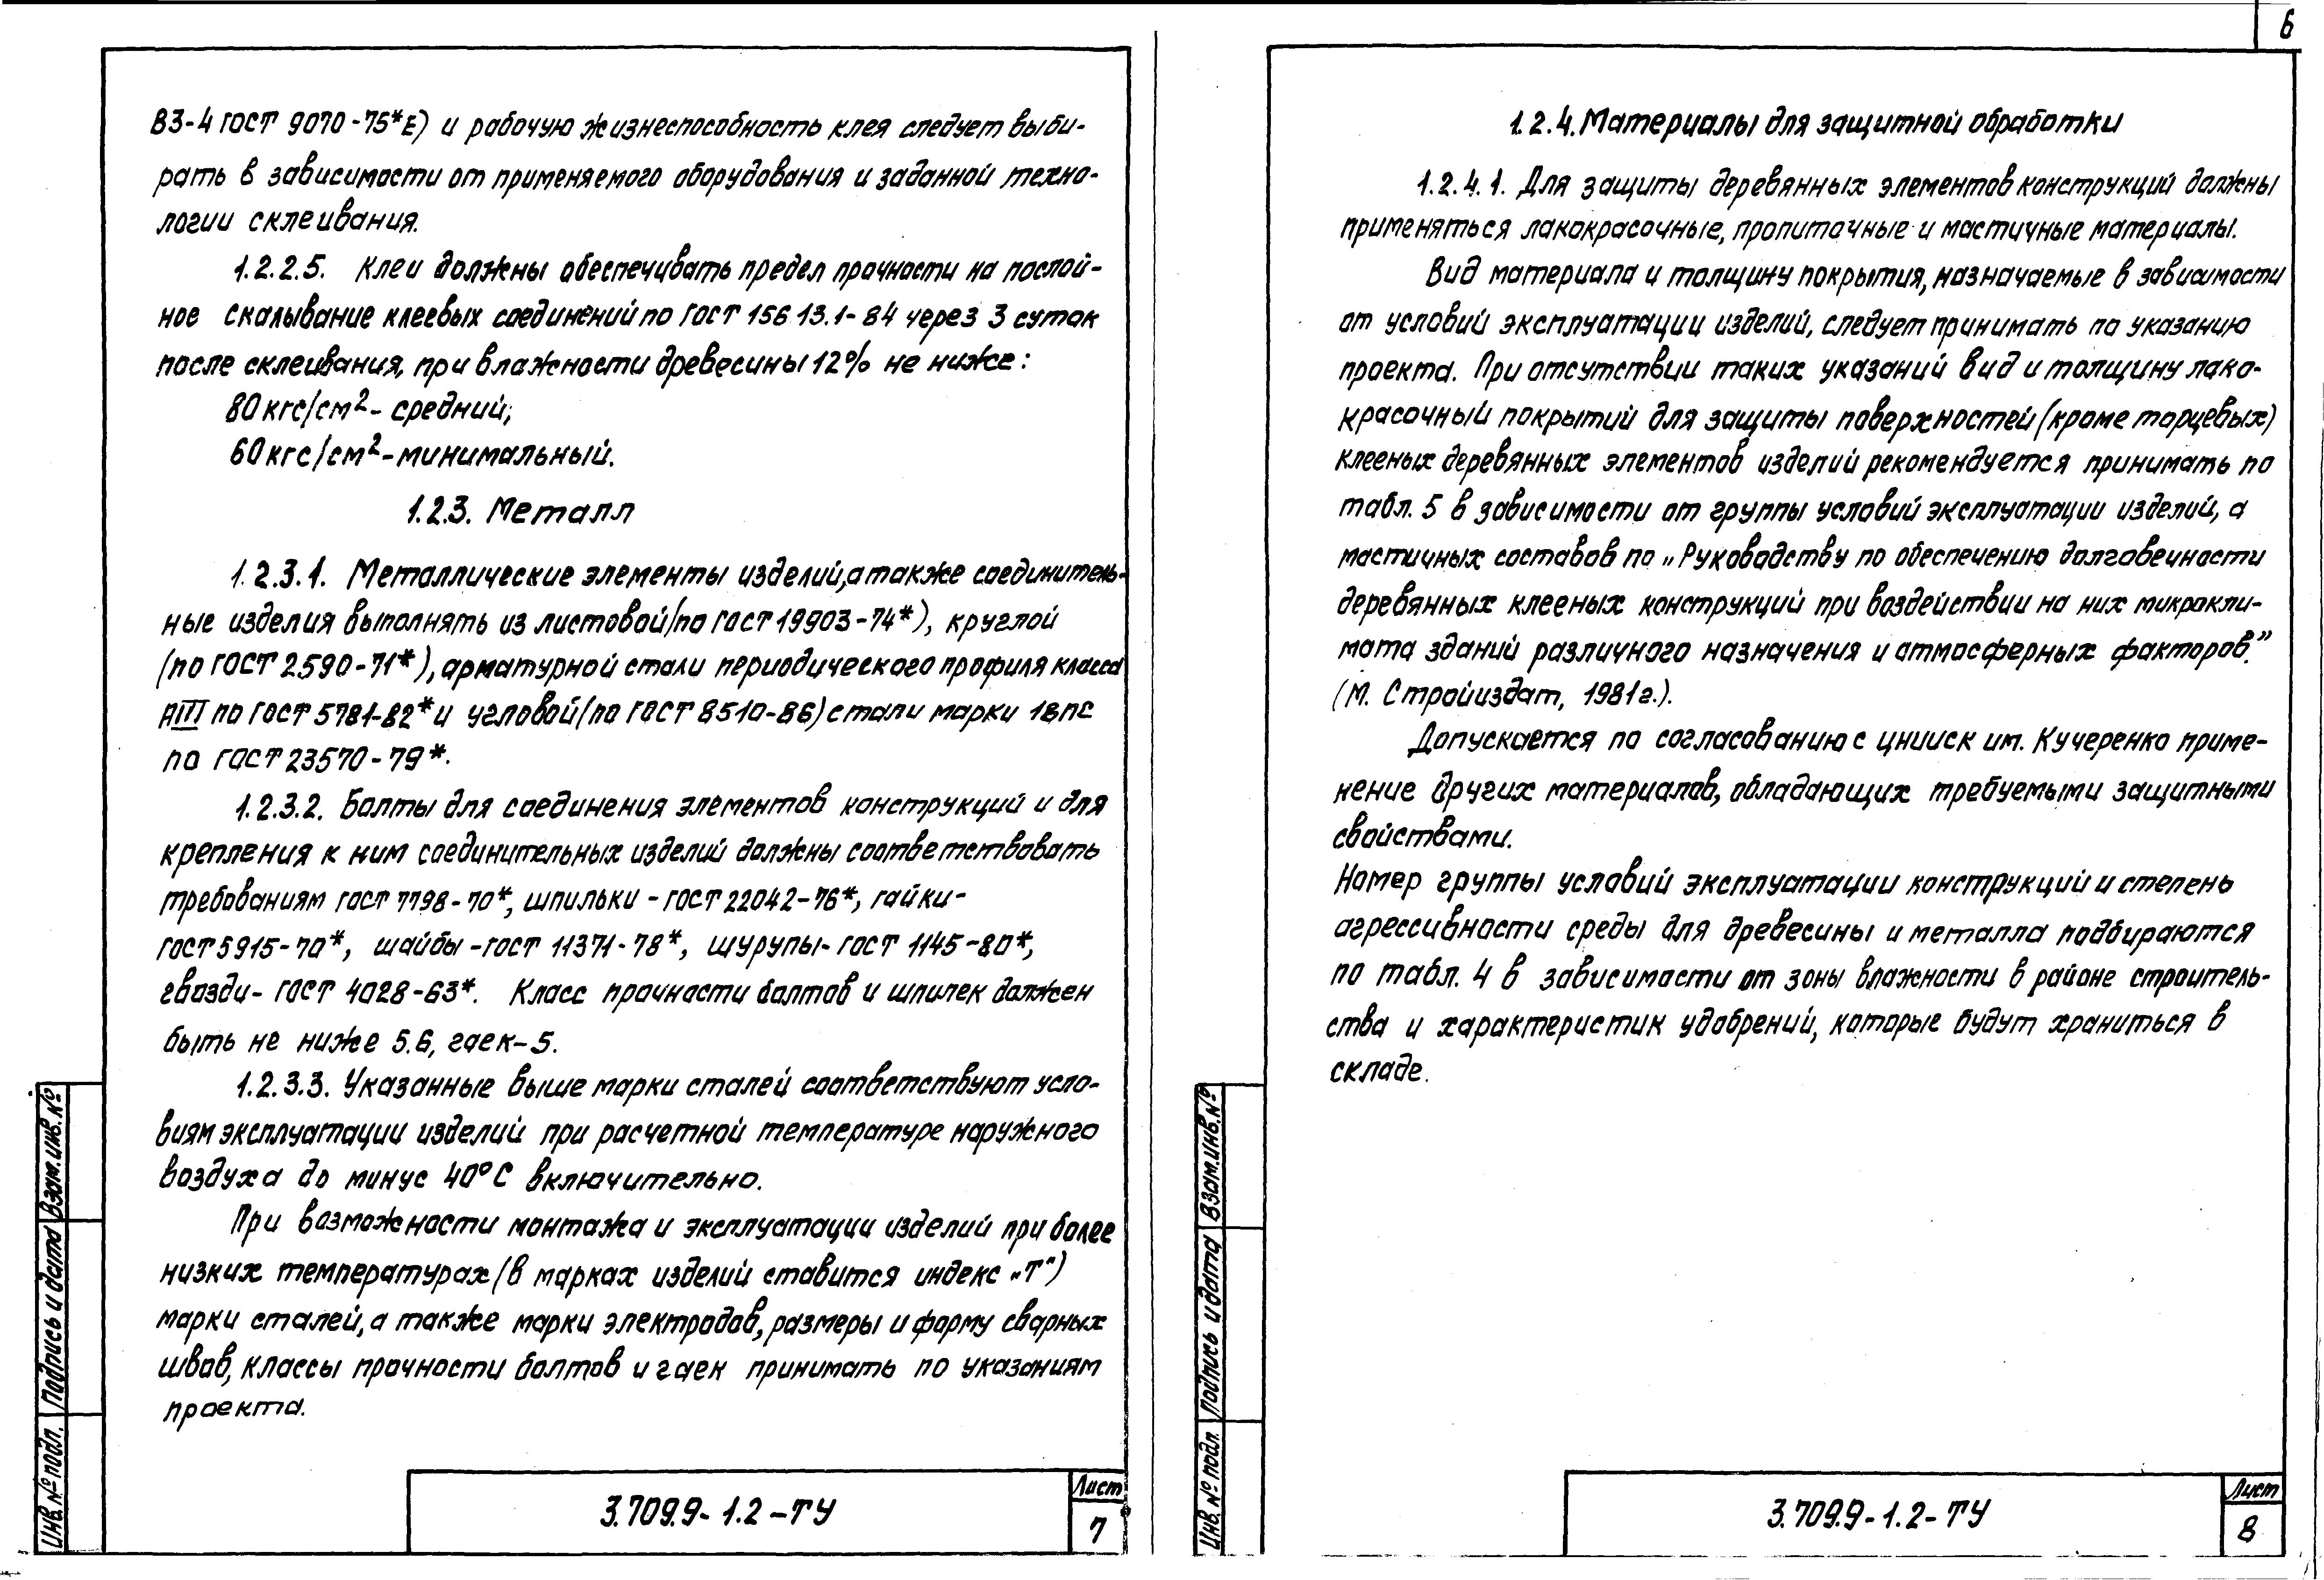 6
ВЗ-4 ГОСТ 9070-75*Е) и рабочую жизнеспособность клея следует выби-
рать в зависимости от применяемого оборудования и заданной техно-
логии склеивания.
1.2.2.5. Клеи должны обеспечивать предел прочности на послой-
ное скалывание клеевых соединений по ГОСТ 15613.1-84 через 3 суток
после склеивания, при влажности древесины 12% не ниже:
80 кгс/см² - средний;
60 кгс/см² - минимальный.
1.2.3. Металл
1.2.3.1. Металлические элементы изделий, а также соединитель-
ные изделия выполнять из листовой (по ГОСТ 19903-74*), круглой
(по ГОСТ 2590-71*), арматурной стали периодического профиля класса
АIII по ГОСТ 5781-82* и угловой (по ГОСТ 8510-86) стали марки 18пс
по ГОСТ 23570-79*.
1.2.3.2. Болты для соединения элементов конструкций и для
крепления к ним соединительных изделий должны соответствовать
требованиям ГОСТ 7798-70*, шпильки - ГОСТ 22042-76*, гайки-
ГОСТ 5915-70*, шайбы - ГОСТ 11371-78*, шурупы - ГОСТ 1145-80*,
гвозди - ГОСТ 4028-63*. Класс прочности болтов и шпилек должен
быть не ниже 5.6, гаек - 5.
1.2.3.3. Указанные выше марки сталей соответствуют усло-
виям эксплуатации изделий при расчетной температуре наружного
воздуха до минус 40°С включительно.
При возможности монтажа и эксплуатации изделий при более
низких температурах (в марках изделий ставится индекс „Т")
марки сталей, а также марки электродов, размеры и форму сварных
швов, классы прочности болтов и гаек принимать по указаниям
проекта.
Инв. № подл. Подпись и дата Взам. инв. №
3.709.9-1.2-ТУ
Лист
7
1.2.4. Материалы для защитной обработки
1.2.4.1. Для защиты деревянных элементов конструкций должны
применяться лакокрасочные, пропиточные и мастичные материалы.
Вид материала и толщину покрытия, назначаемые в зависимости
от условий эксплуатации изделий, следует принимать по указанию
проекта. При отсутствии таких указаний вид и толщину лако-
красочный покрытий для защиты поверхностей (кроме торцевых)
клееных деревянных элементов изделий рекомендуется принимать по
табл. 5 в зависимости от группы условий эксплуатации изделий, а
мастичных составов по „Руководству по обеспечению долговечности
деревянных клееных конструкций при воздействии на них микрокли-
мата зданий различного назначения и атмосферных факторов."
(М. Стройиздат, 1981 г.).
Допускается по согласованию с ЦНИИСК им. Кучеренко приме-
нение других материалов, обладающих требуемыми защитными
свойствами.
Номер группы условий эксплуатации конструкций и степень
агрессивности среды для древесины и металла подбираются
по табл. 4 в зависимости от зоны влажности в районе строитель-
ства и характеристик удобрений, которые будут храниться в
складе.
Инв. № подл. Подпись и дата Взам. инв. №
3.709.9-1.2-ТУ
Лист
8